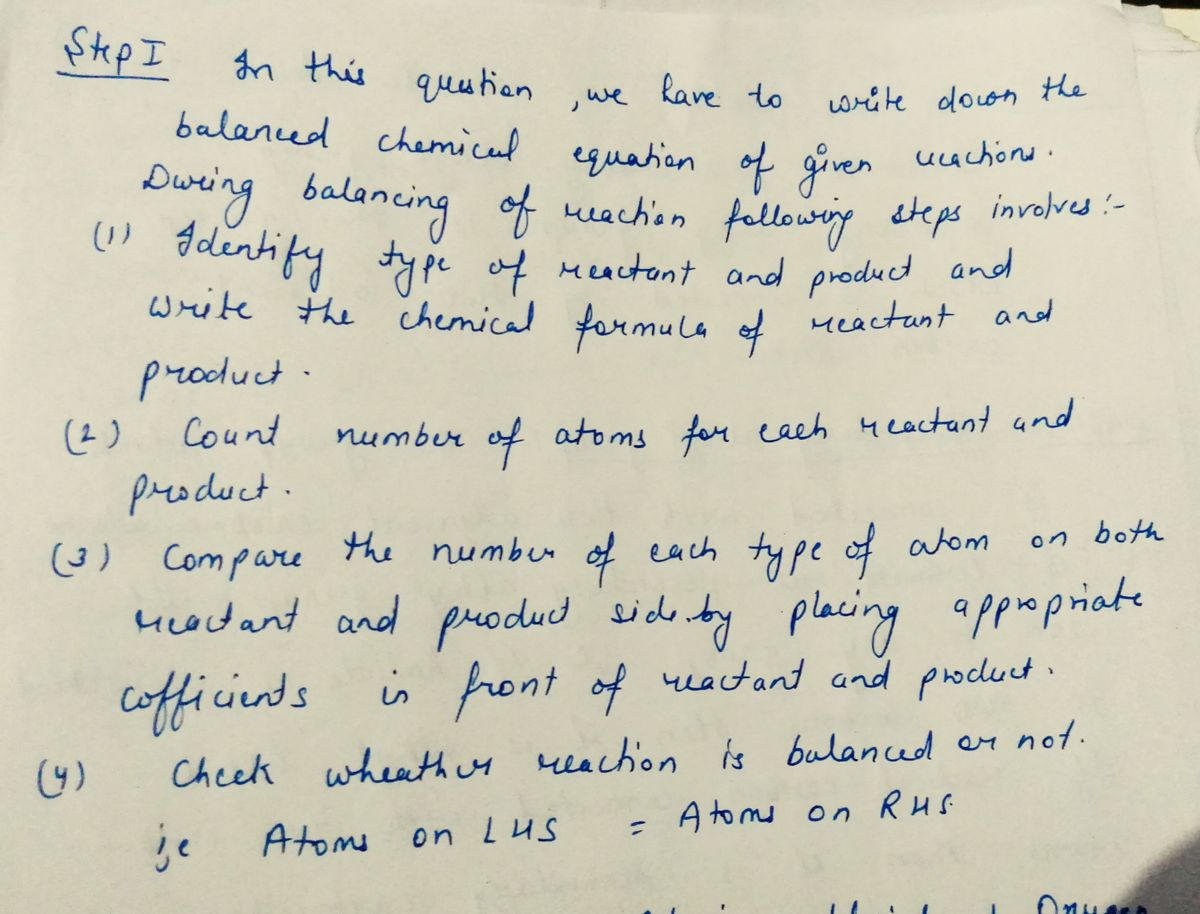 Step I In this question, we have to write down the
balanced chemical equation of given reactions.
During balancing of reaction following steps involves :-
(1) Identify type of reactant and product and
write the chemical formula of reactant and
product.
(2) Count number of atoms for each reactant and
product.
(3) Compare the number of each type of atom on both
reactant and product side by placing appropriate
cofficients in front of reactant and product.
(4) Check wheather reaction is balanced or not.
i,e Atoms on LHS = Atoms on RHS